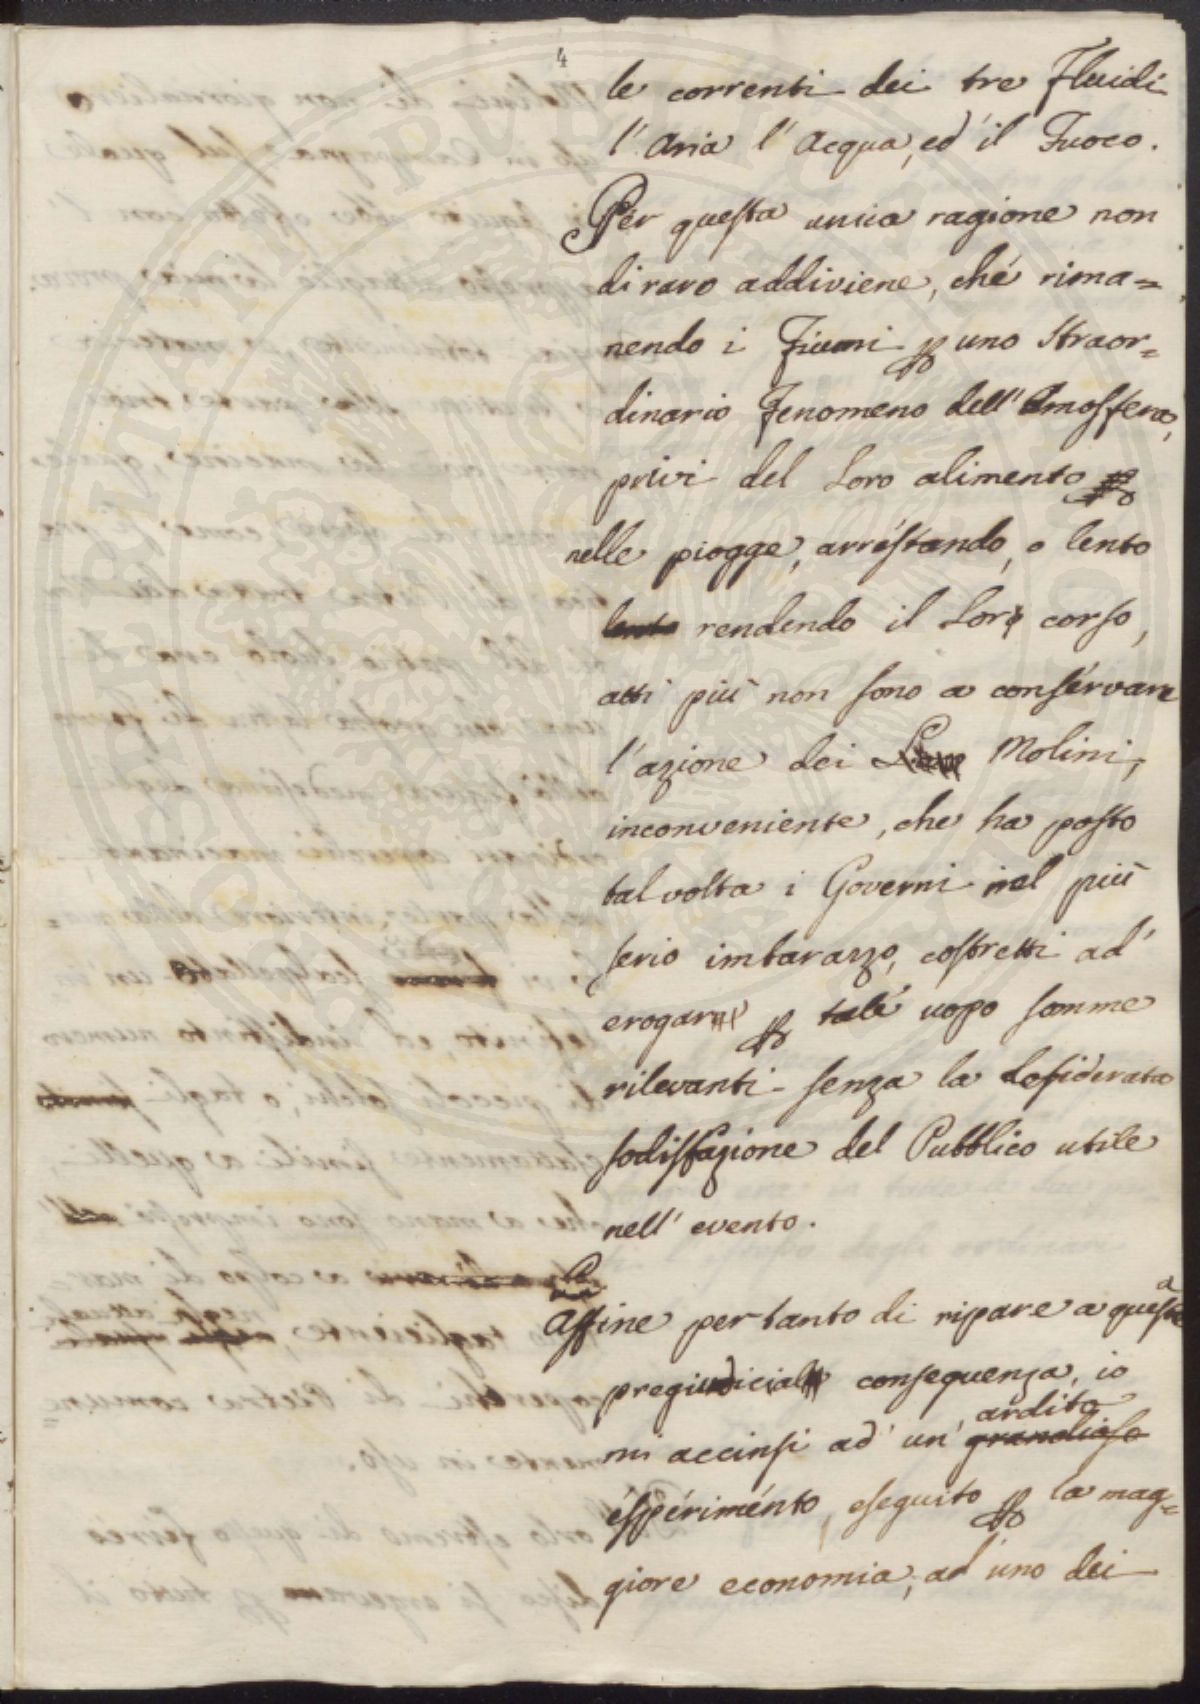 4
le correnti dei tre Fluidi
l'Aria l'Acqua, ed il Fuoco.
Per questa unica ragione non
di raro addiviene, che rima=
nendo i Fiumi per uno straor=
dinario Fenomeno dell'Atmosfera,
privi del Loro alimento
nelle piogge, arrestando, o lento
lento rendendo il Loro corso,
atti più non sono a conservare
l'azione dei Molini,
inconveniente, che ha posto
tal volta i Governi nel più
serio imbarazzo, costretti ad
erogar per tale uopo somme
rilevanti senza la desiderata
sodisfazione del Pubblico utile
nell'evento.
Affine pertanto di ripare a questa
pregiudicial consequenza, io
mi accinsi ad un' ardito
grandioso
esperimento, eseguito per la mag=
giore economia, ad uno dei